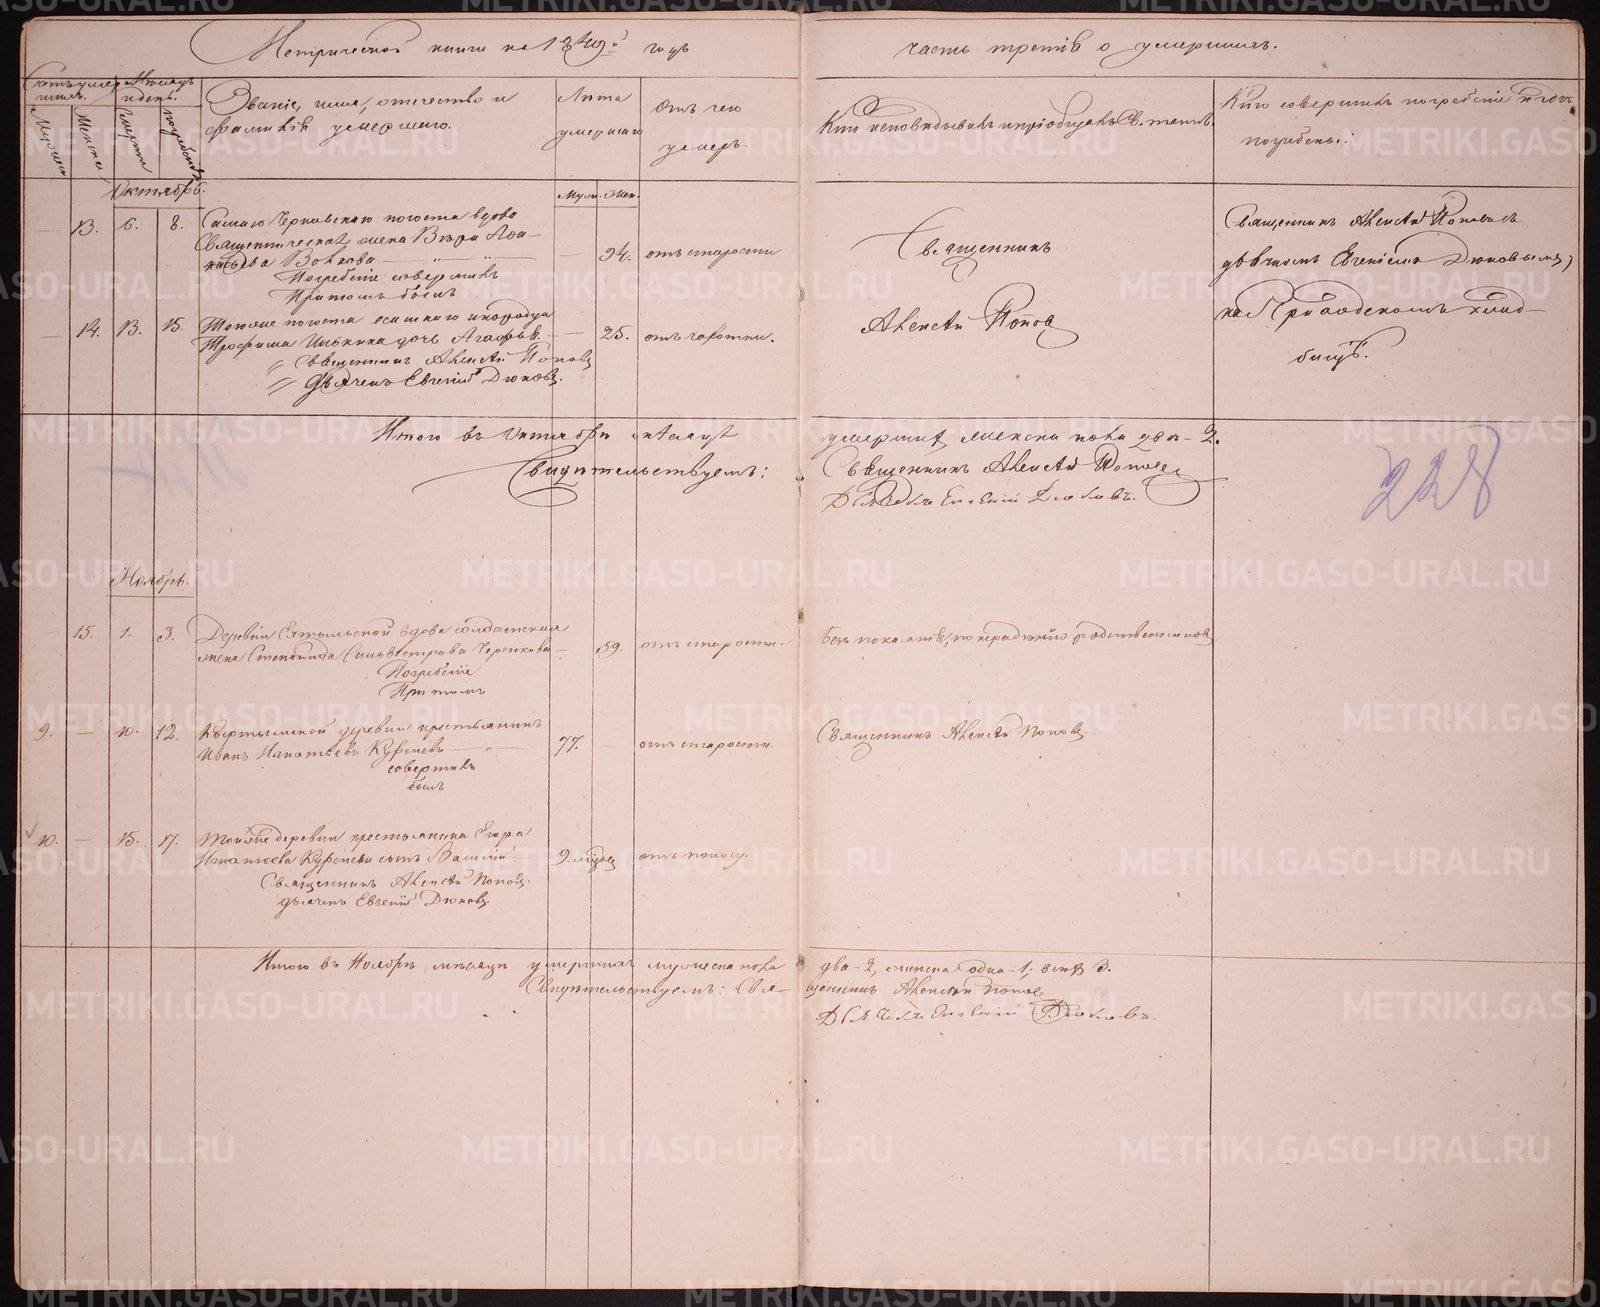 Метрической книги на 1849й годъ
часть третія о умершихъ.
Счетъ умершихъ.
Мужеска
Женска
Мѣсяцъ и день.
смерти
погребенія
Званіе, имя, отечество и
фамилія умершаго.
Лѣта
умершаго
Отъ чего
умеръ.
Кто исповѣдывалъ и пріобщалъ Св. таинъ.
Кто совершилъ погребеніе и гдѣ
погребены:
Октябрь.
Муж. Жен.
13. 6. 8. Самаго погоста вдова
Священническая жена Вѣра
Волкова
94. отъ старости
Погребеніе совершилъ
Притомъ былъ
Священникъ
Алексѣй Поповъ
Священникъ Алексѣй Поповъ съ
дьячкомъ Евгеніемъ Дюковымъ,
на Приходскомъ клад-
бищѣ.
14. 13. 15. Тогоже погоста ясашнаго инородца
Трофима дочь Агафья
25. отъ чахотки.
Священникъ Алексѣй Поповъ
Дьячекъ Евгеній Дюковъ.
Итого въ Октябрѣ мѣсяцѣ
умершихъ женска пола два - 2.
Свидѣтельствуемъ:
Священникъ Алексѣй Поповъ
Дьячекъ Евгеній Дюковъ.
228
Ноябрь.
15. 1. 3. Деревни вдова солдатская
жена Степанида Сильвестрова
59. отъ старости.
Безъ покаянія, по нерадѣнію родственниковъ
Погребеніе
При томъ
9. 10. 12. деревни крестьянинъ
Иванъ Игнатьевъ
77. отъ старости.
Священникъ Алексѣй Поповъ.
совершилъ
былъ
10. 15. 17. Тойже деревни крестьянина Егора
Игнатьева сынъ Василій
9. мѣсяц. отъ поносу.
Священникъ Алексѣй Поповъ.
дьячекъ Евгеній Дюковъ.
Итого въ Ноябрѣ мѣсяцѣ умершихъ мужеска пола
два - 2, женска одна - 1; всѣхъ 3.
Свидѣтельствуемъ: Свя-
щенникъ Алексѣй Поповъ
Дьячекъ Евгеній Дюковъ.
METRIKI.GASO-URAL.RU